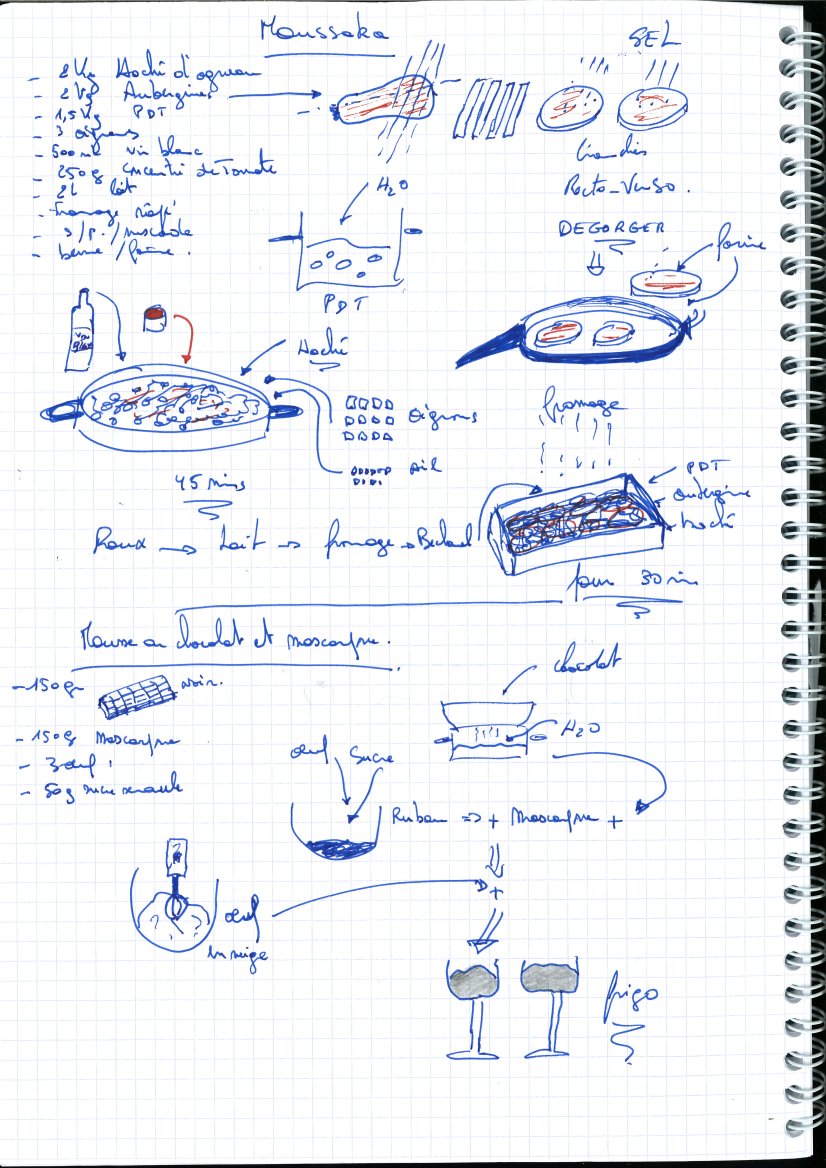 Moussaka
- 2 Kg Haché d'agneau
- 2 Kg Aubergines
- 1,5 Kg PDT
- 3 oignons
- 500 ml vin blanc
- 250 g concentré de Tomate
- 2L lait
- fromage râpé
- S/P./muscade
- beurre/farine.
SEL
Recto-Verso.
DEGORGER
farine
H2O
PDT
Haché
oignons
Ail
45 mins
fromage
PDT
aubergine
haché
Roux → Lait → fromage →
four 30 min
Mousse au chocolat et mascarpone.
- 150 gr noir.
- 150g Mascarpone
- 3 œufs
- 50g sucre
chocolat
H2O
œuf sucre
Ruban => + Mascarpone +
+
œuf
en neige
frigo